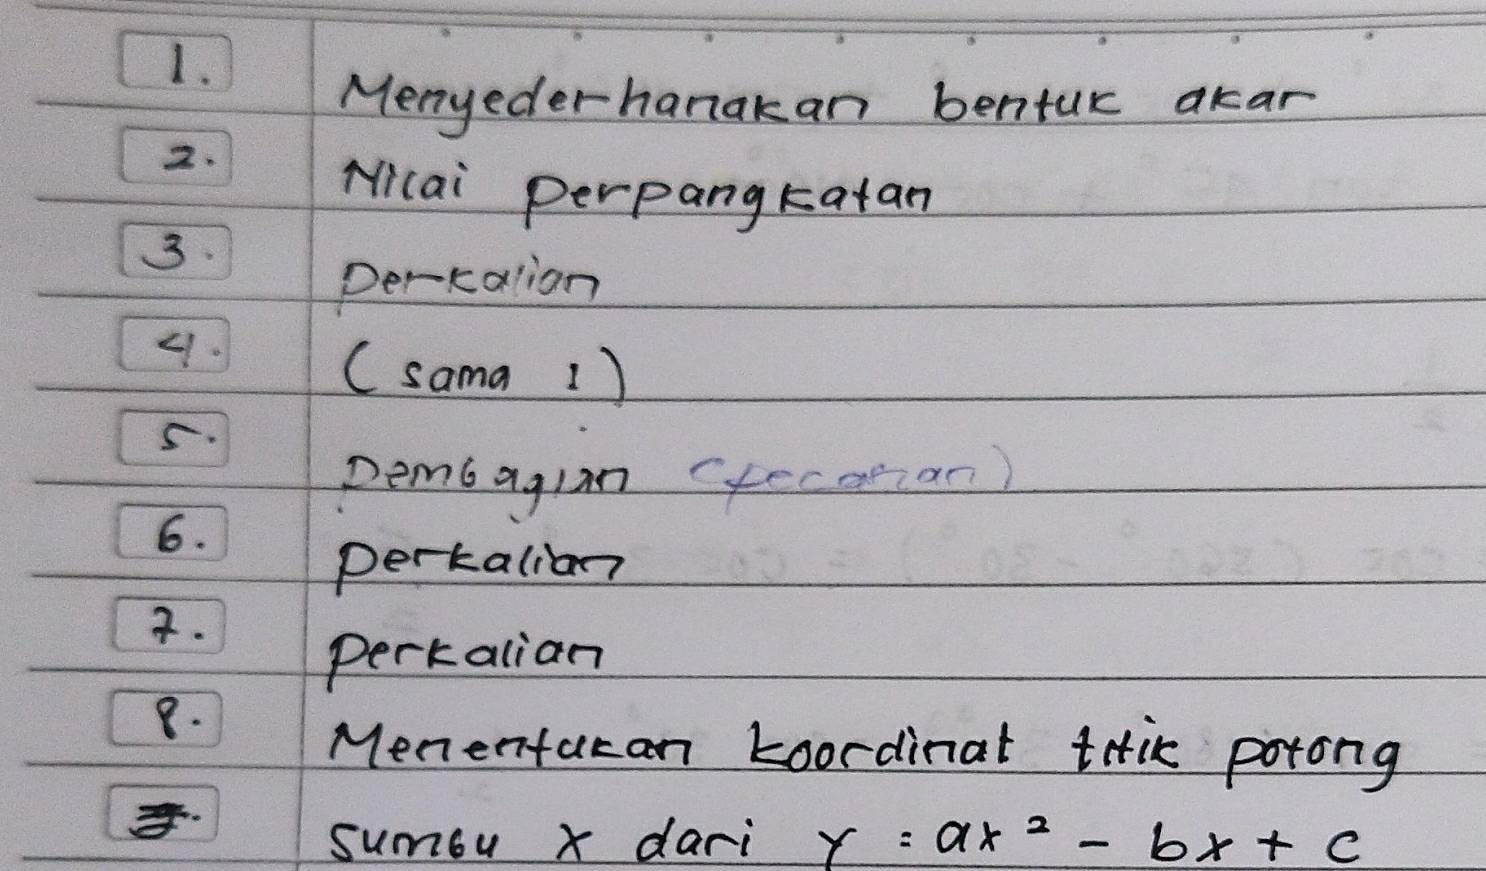 1. Menyederhanakan bentuk akar
2. Nilai perpangkatan
3. Perkalian
4. (sama 1)
5. Pembagian (pecahan)
6. perkalian
7. perkalian
8. Menentukan koordinat titik potong
sumbu x dari y = ax² - bx + c